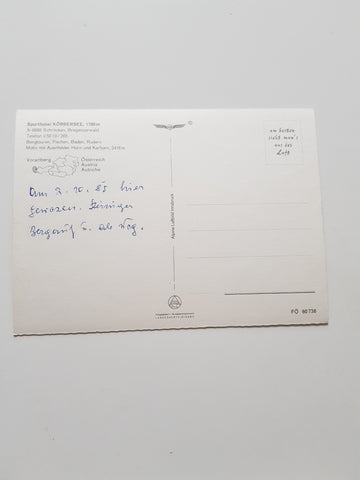 Sporthotel KÖRBERSEE, 1700m
A-6888 Schröcken, Bregenzerwald
Telefon 05519/265
Bergtouren, Fischen, Baden, Rudern
Motiv mit Auenfelder Horn und Karhorn, 2416m
Vorarlberg
Österreich
Austria
Autriche
Am 7. 10. 85 hier
gewesen.
Bergauf
Alpine Luftbild Innsbruck
am besten
sieht man's
aus der
Luft
FÖ 60 738